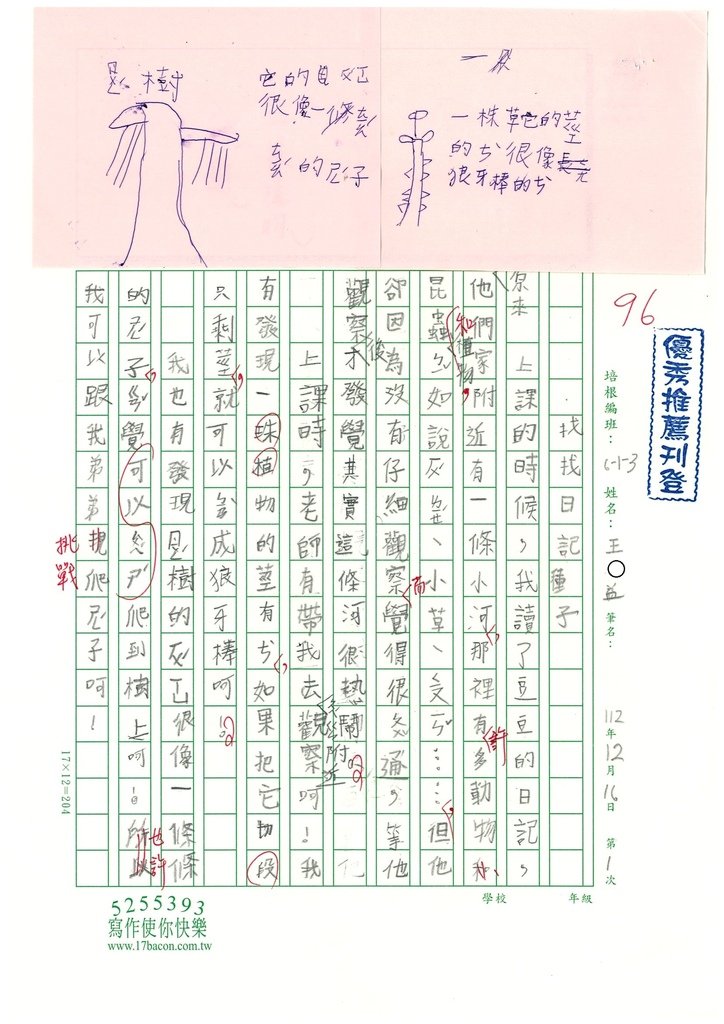 樹
它的
很像一條
的尼子
一株草它的莖
的ㄘ很像長
狼牙棒的ㄘ
96
優秀推薦刊登
培根編班：
姓名：王○益
筆名：
112年12月16日 第1次
找找日記種子
上課的時候，我讀了豆豆的日記，
原來
他們家附近有一條小河，那裡有許多動物和
和植物，
昆蟲，如說灰 、小草、 ……，但他
卻因為沒有仔細觀察而覺得很 通，等他
觀察後才發覺其實這條河很熱鬧。 他
上課時，老師有帶我去觀察呵！我
附近
有發現一珠植物的莖有ㄘ，如果把它切段
只剩莖，就可以 成狼牙棒呵！
我也有發現 樹的灰 很像一條條
的尼子，覺可以 爬到樹上呵！所以
也許
我可以跟我弟弟 爬尼子呵！
挑戰
17×12=204
學校 年級
5255393
寫作使你快樂
www.17bacon.com.tw